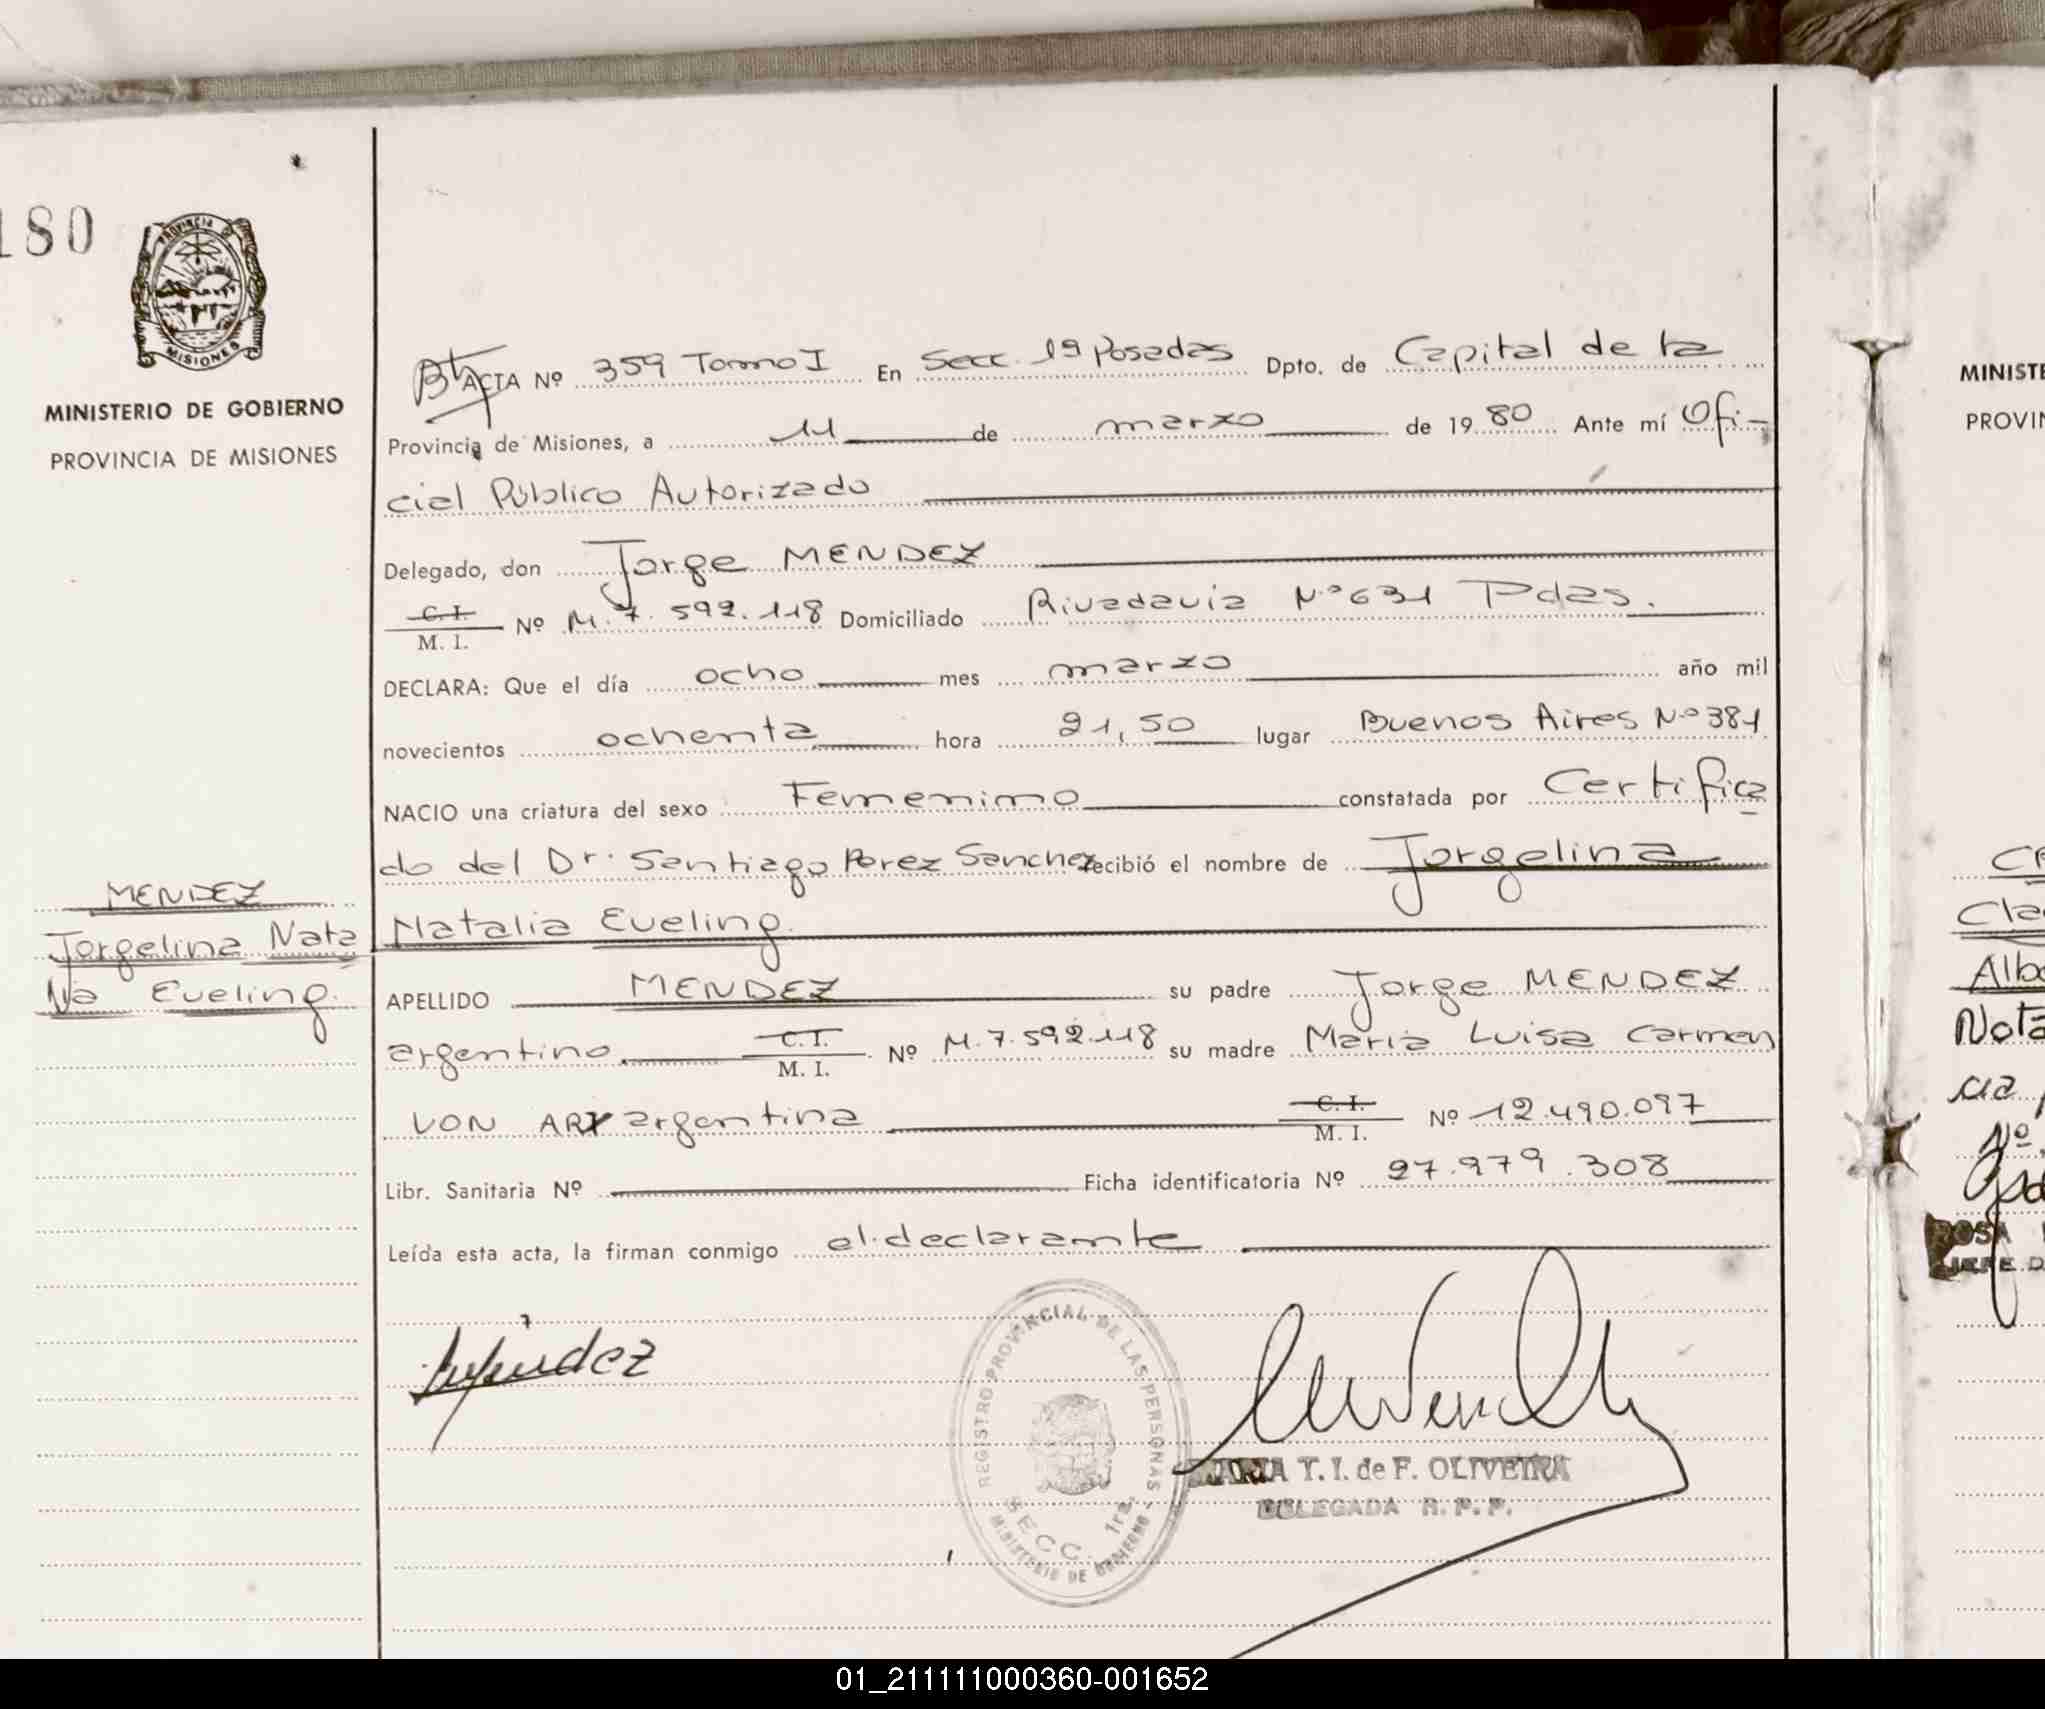 180
PROVINCIA DE
MISIONES
MINISTERIO DE GOBIERNO
PROVINCIA DE MISIONES
ACTA Nº 359 Tomo I En Secc. 1ª Posadas Dpto. de Capital de la
Provincia de Misiones, a 11 de marzo de 1980 Ante mí Ofi-
cial Público Autorizado
Delegado, don Jorge MENDEZ
C. I.
M. I. Nº M. 7. 592. 118 Domiciliado Rivadavia Nº 631 Pdas.
DECLARA: Que el día ocho mes marzo año mil
novecientos ochenta hora 21,50 lugar Buenos Aires Nº 381
NACIO una criatura del sexo Femenino constatada por Certifica
do del Dr. Santiago Perez Sanchez recibió el nombre de Jorgelina
Natalia Eveling.
APELLIDO MENDEZ su padre Jorge MENDEZ
argentino. C. I.
M. I. Nº M. 7. 592. 118 su madre Maria Luisa Carmen
VON ARX argentina C. I.
M. I. Nº 12.490.097
Libr. Sanitaria Nº Ficha identificatoria Nº 27.979.308
Leída esta acta, la firman conmigo el declarante
MENDEZ
Jorgelina Nata
lia Eveling.
REGISTRO PROVINCIAL DE LAS PERSONAS
SECC. 1ra.
MINISTERIO DE GOBIERNO
MARIA T. I. de F. OLIVEIRA
DELEGADA R. P. P.
MINISTE
PROVIN
Cla
Albe
Nota
Nº
ROSA
JEFE D
01_211111000360-001652